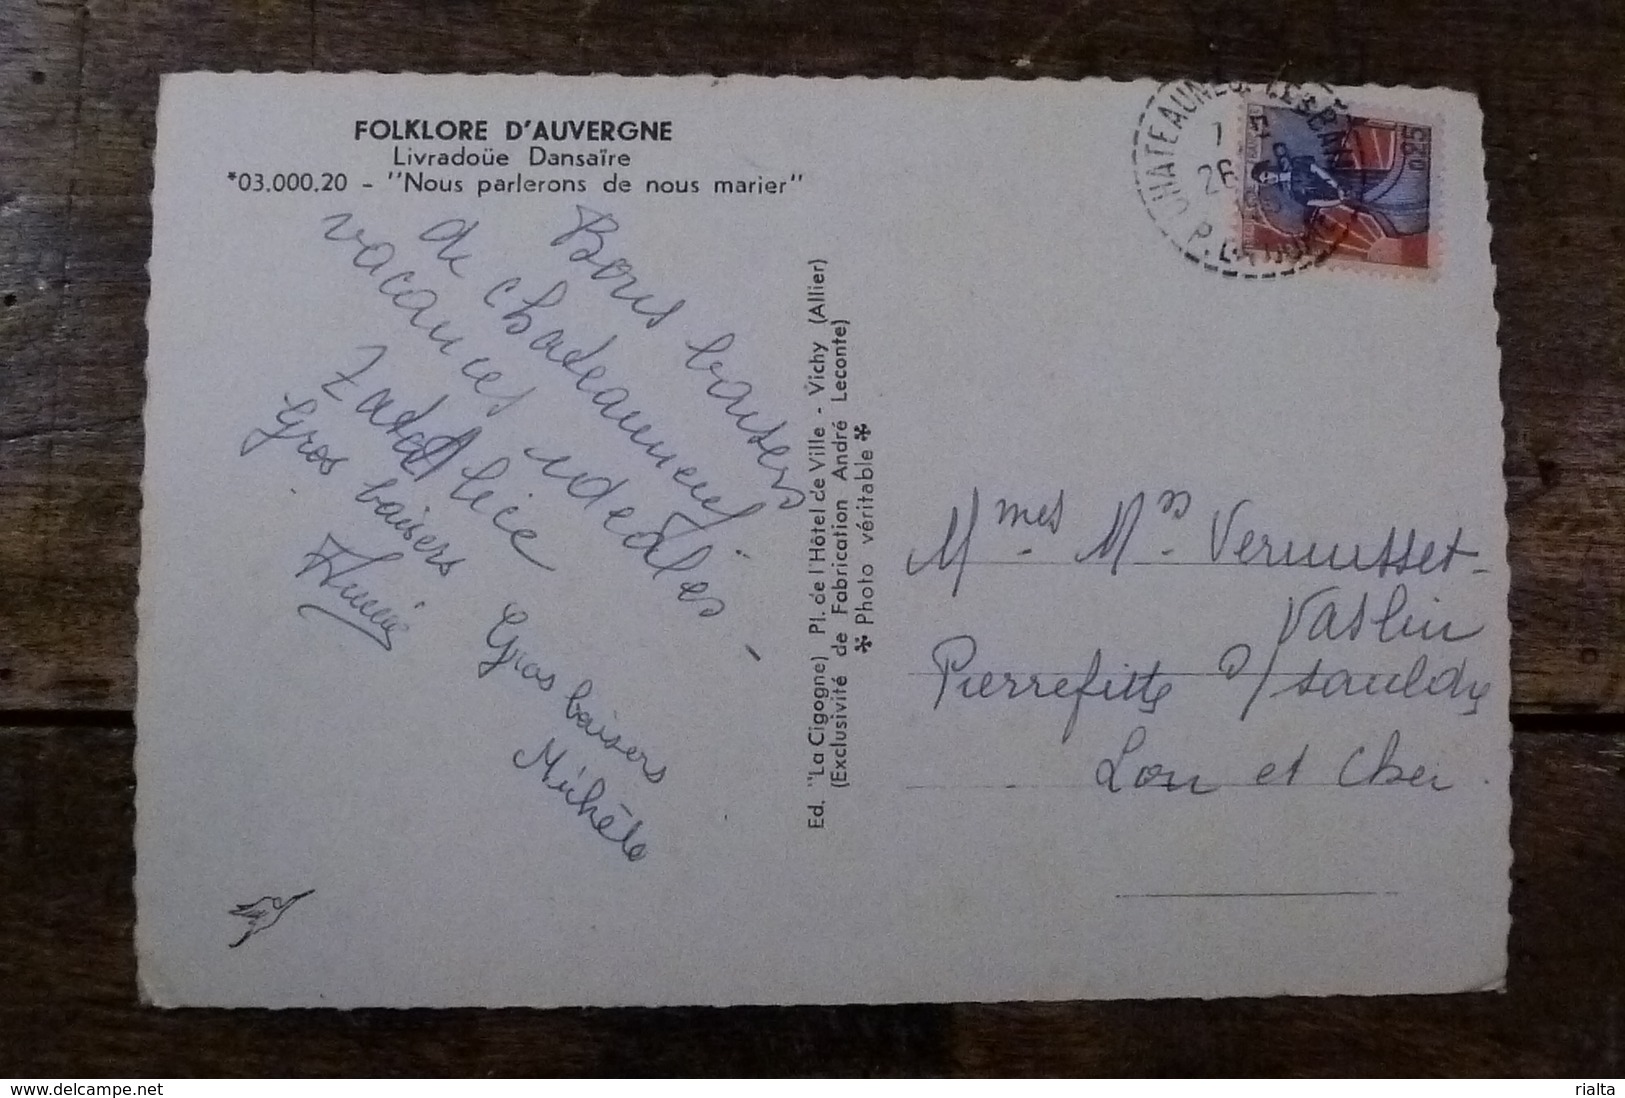 FOLKLORE D'AUVERGNE
Livradoüe Dansaïre
*03.000.20 - "Nous parlerons de nous marier"
Bons baisers
de chateauneuf
vacances idéales -
Alice
Gros baisers
Gros baisers
Michèle
Ed. "La Cigogne) Pl. de l'Hôtel de Ville - Vichy (Allier)
(Exclusivité de Fabrication André Leconte)
Photo véritable
CHATEAUNEUF LES BAINS
26
P. DE DOME
0,25
Mmes Vermusset-
Vaslin
Pierrefitte s/ sauldre
Loir et Cher
www.delcampe.net
rialta